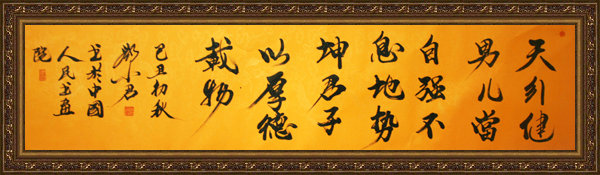 天行健
男儿當
自强不
息地势
坤君子
以厚德
載物
己丑初秋
书於中國
人民书画
院